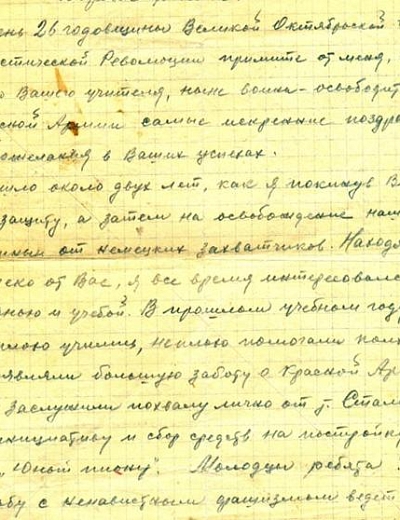 ень 26 годовщины Великой Октябрьской
стической Революции примите от меня,
о Вашего учителя, ныне воина-освободит
сной Армии самые искренние поздра
ожелания в Ваших успехах.
шло около двух лет, как я покинув В
защиту, а затем на освобождение наш
ины от немецких захватчиков. Находя
леко от Вас, я все время интересовалс
ною и учебой. В прошлом учебном году
училищ, помогали
являли большую заботу о Красной Ар
заслужили похвалу лично от т. Стал
инициативу и сбор средств на постройку
"Юный пионер". Молодцы ребята
бу с ненавистным фашизмом ведет